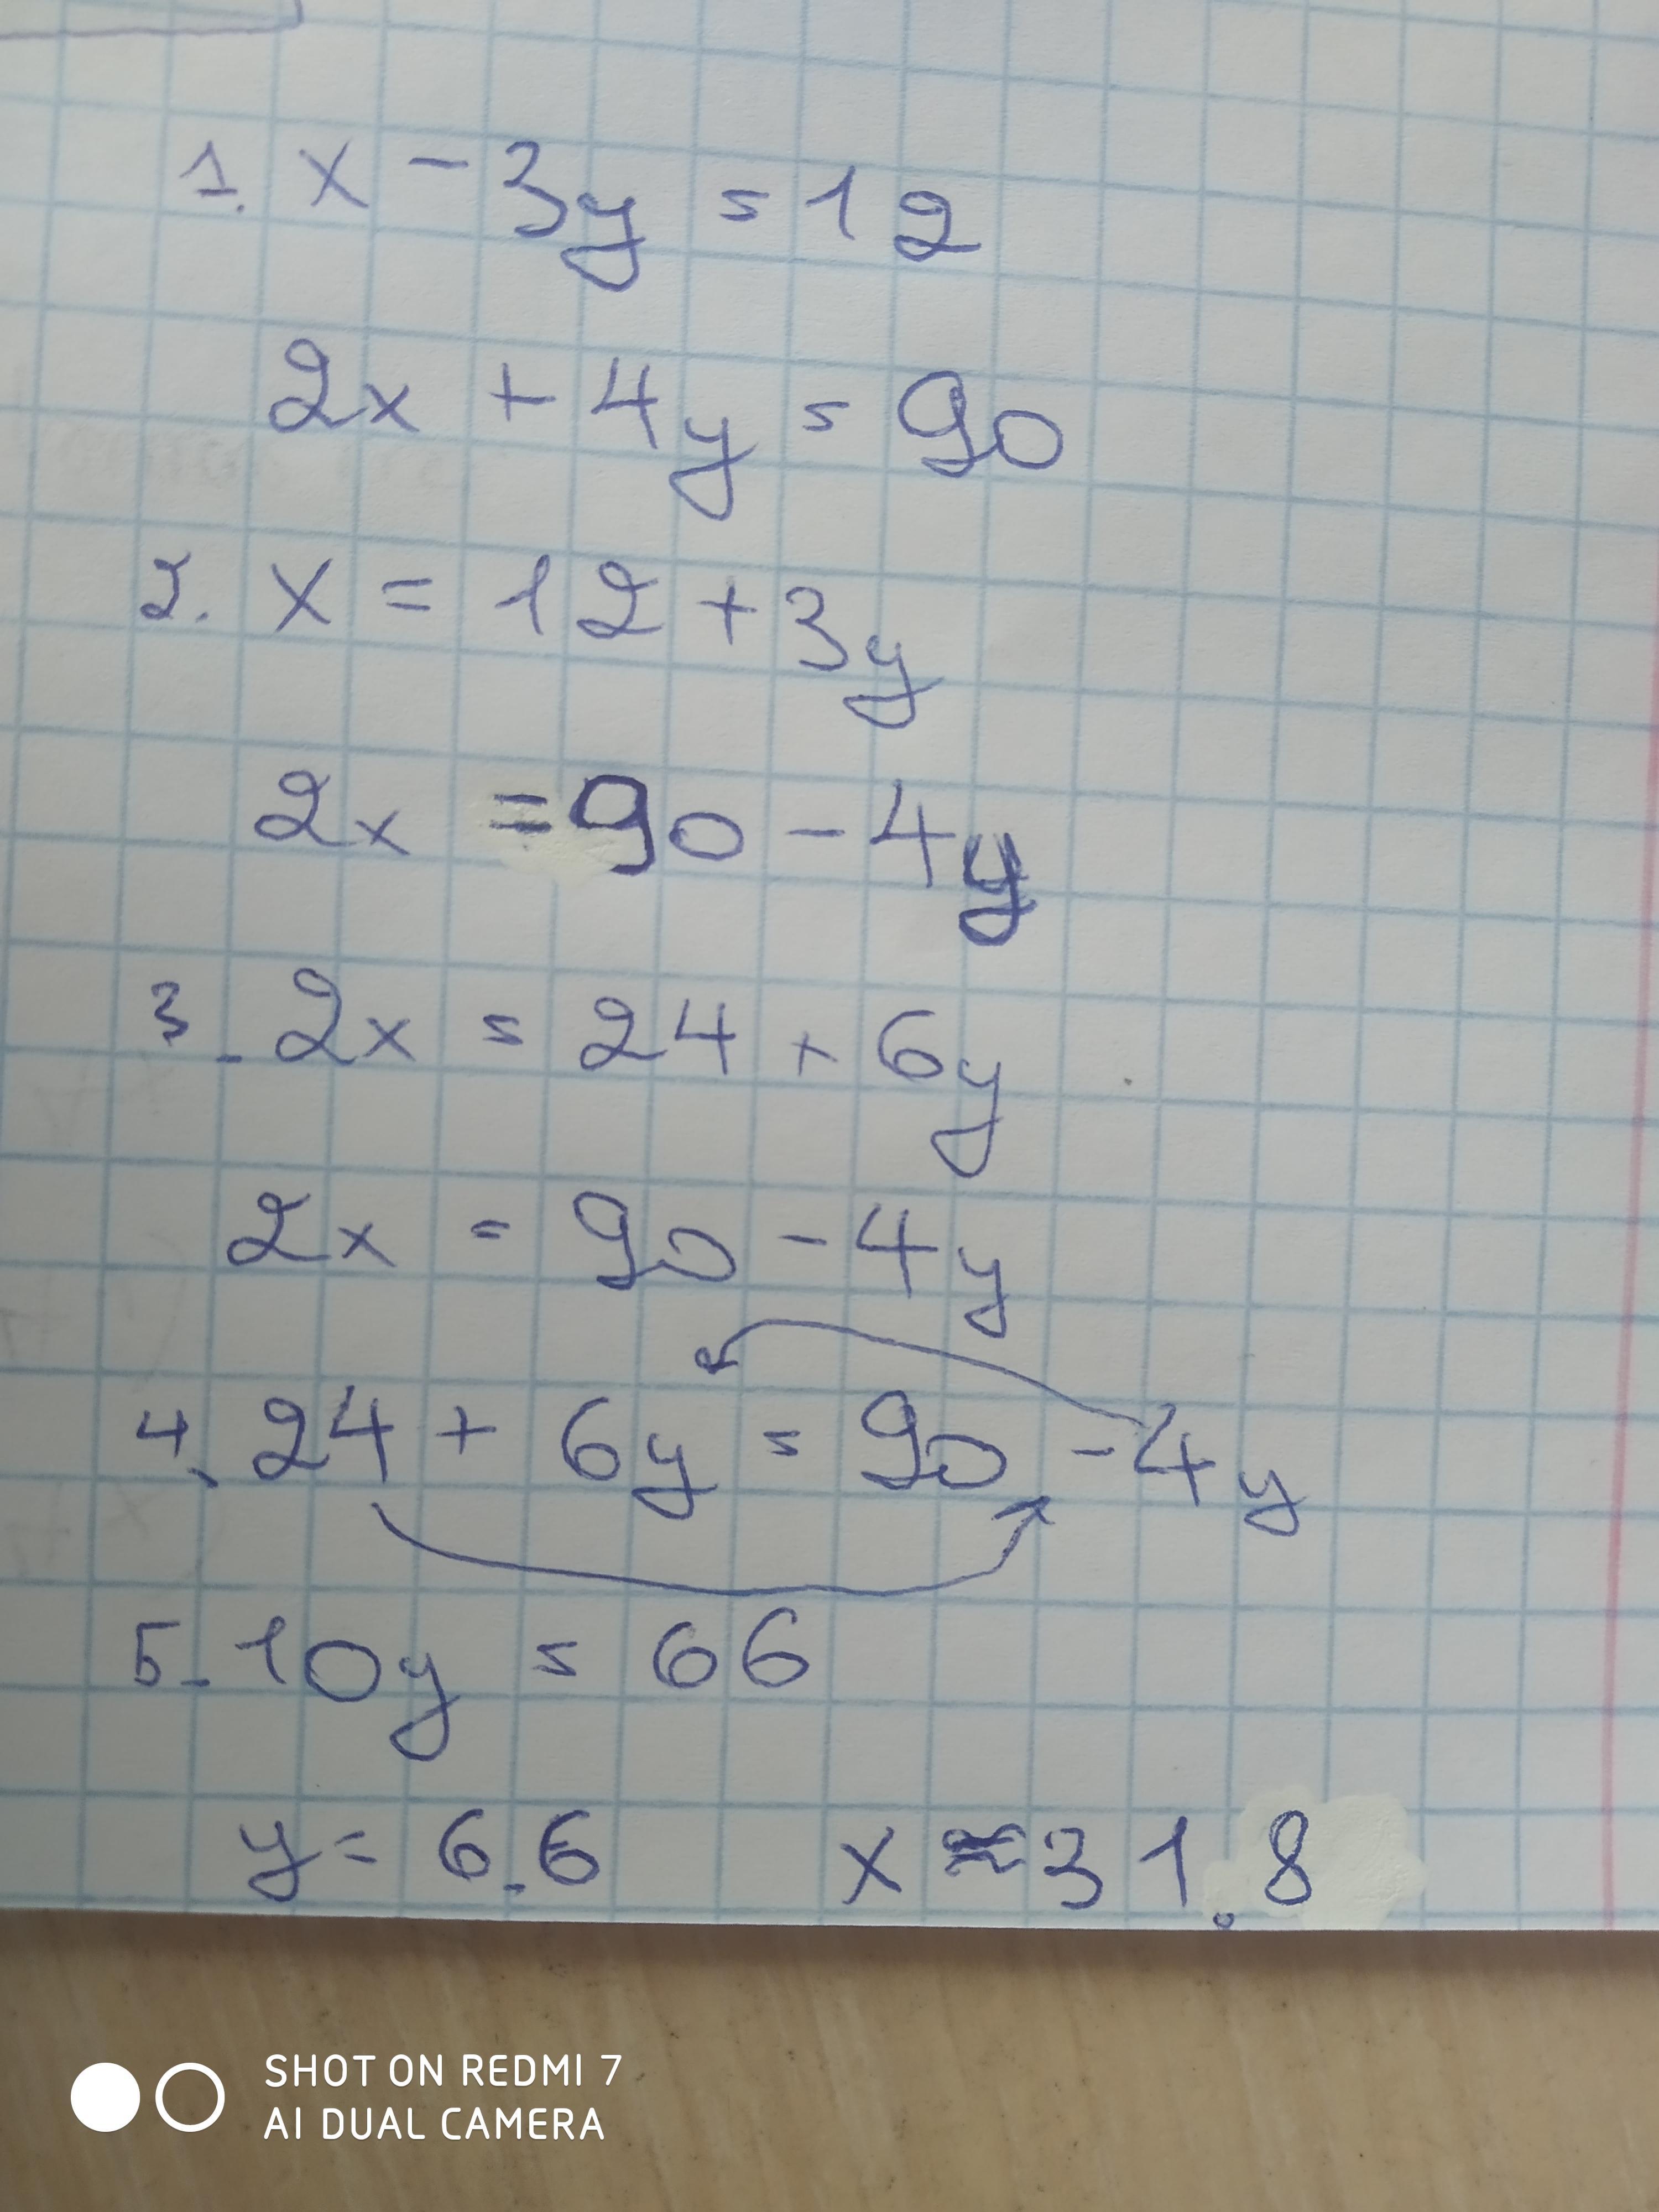 1. x - 3y = 12
2x + 4y = 90
2. x = 12 + 3y
2x = 90 - 4y
3. 2x = 24 + 6y
2x = 90 - 4y
4. 24 + 6y = 90 - 4y
5. 10y = 66
y = 6.6 x ≈ 31.8
SHOT ON REDMI 7
AI DUAL CAMERA